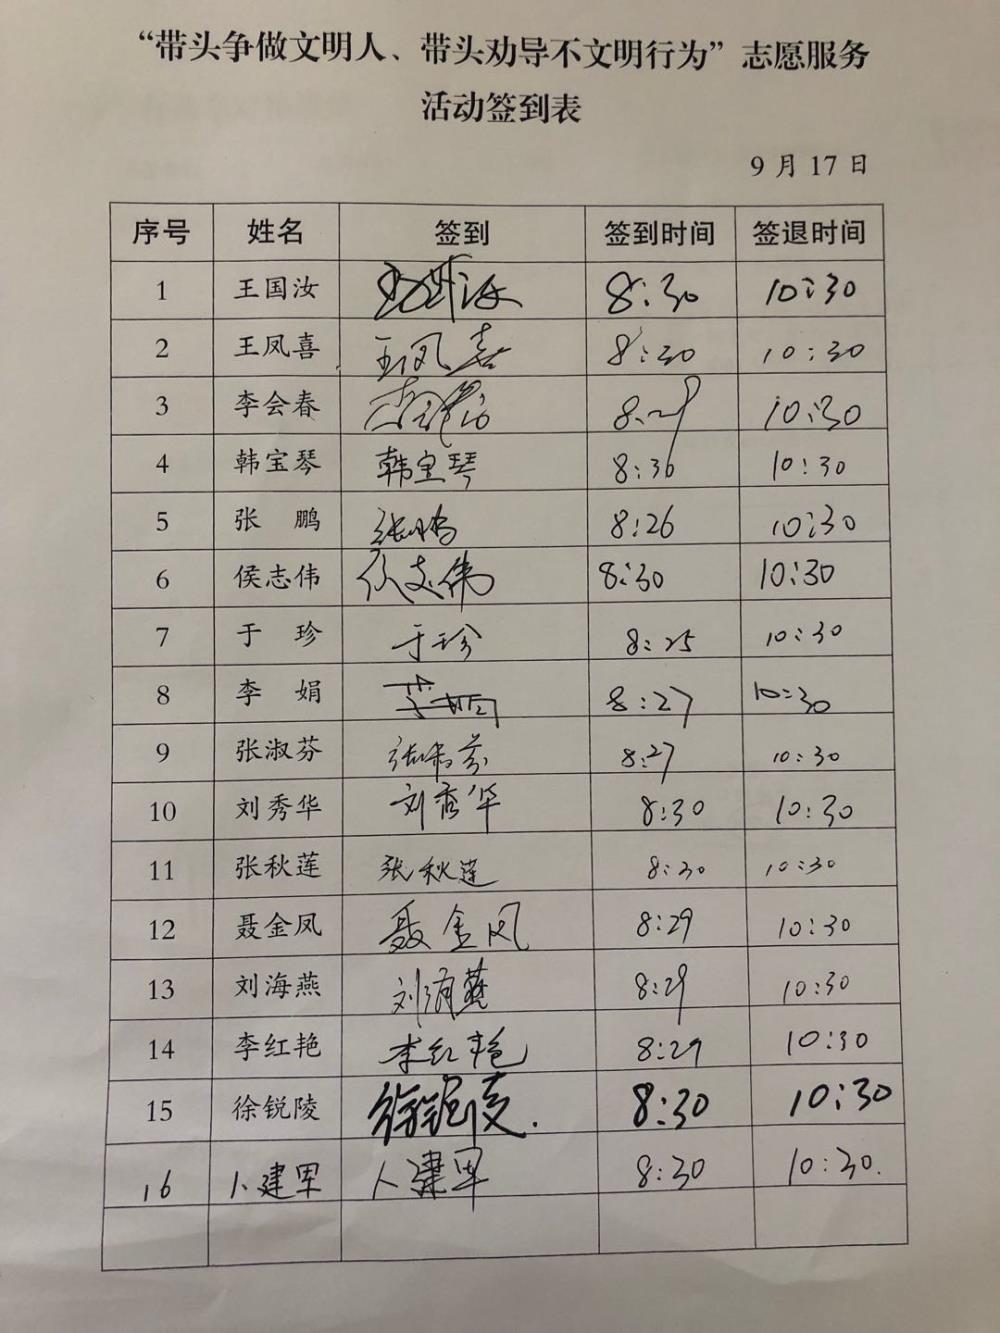 “带头争做文明人、带头劝导不文明行为”志愿服务
活动签到表
9 月 17 日
序号 姓名 签到 签到时间 签退时间
1 王国汝 王国汝 8:30 10:30
2 王凤喜 王凤喜 8:30 10:30
3 李会春 李会春 8:29 10:30
4 韩宝琴 韩宝琴 8:30 10:30
5 张 鹏 张鹏 8:26 10:30
6 侯志伟 侯志伟 8:30 10:30
7 于 珍 于珍 8:25 10:30
8 李 娟 李娟 8:27 10:30
9 张淑芬 张淑芬 8:27 10:30
10 刘秀华 刘秀华 8:30 10:30
11 张秋莲 张秋莲 8:30 10:30
12 聂金凤 聂金凤 8:29 10:30
13 刘海燕 刘海燕 8:29 10:30
14 李红艳 李红艳 8:29 10:30
15 徐锐陵 徐锐陵. 8:30 10:30
16 建军 建军 8:30 10:30.